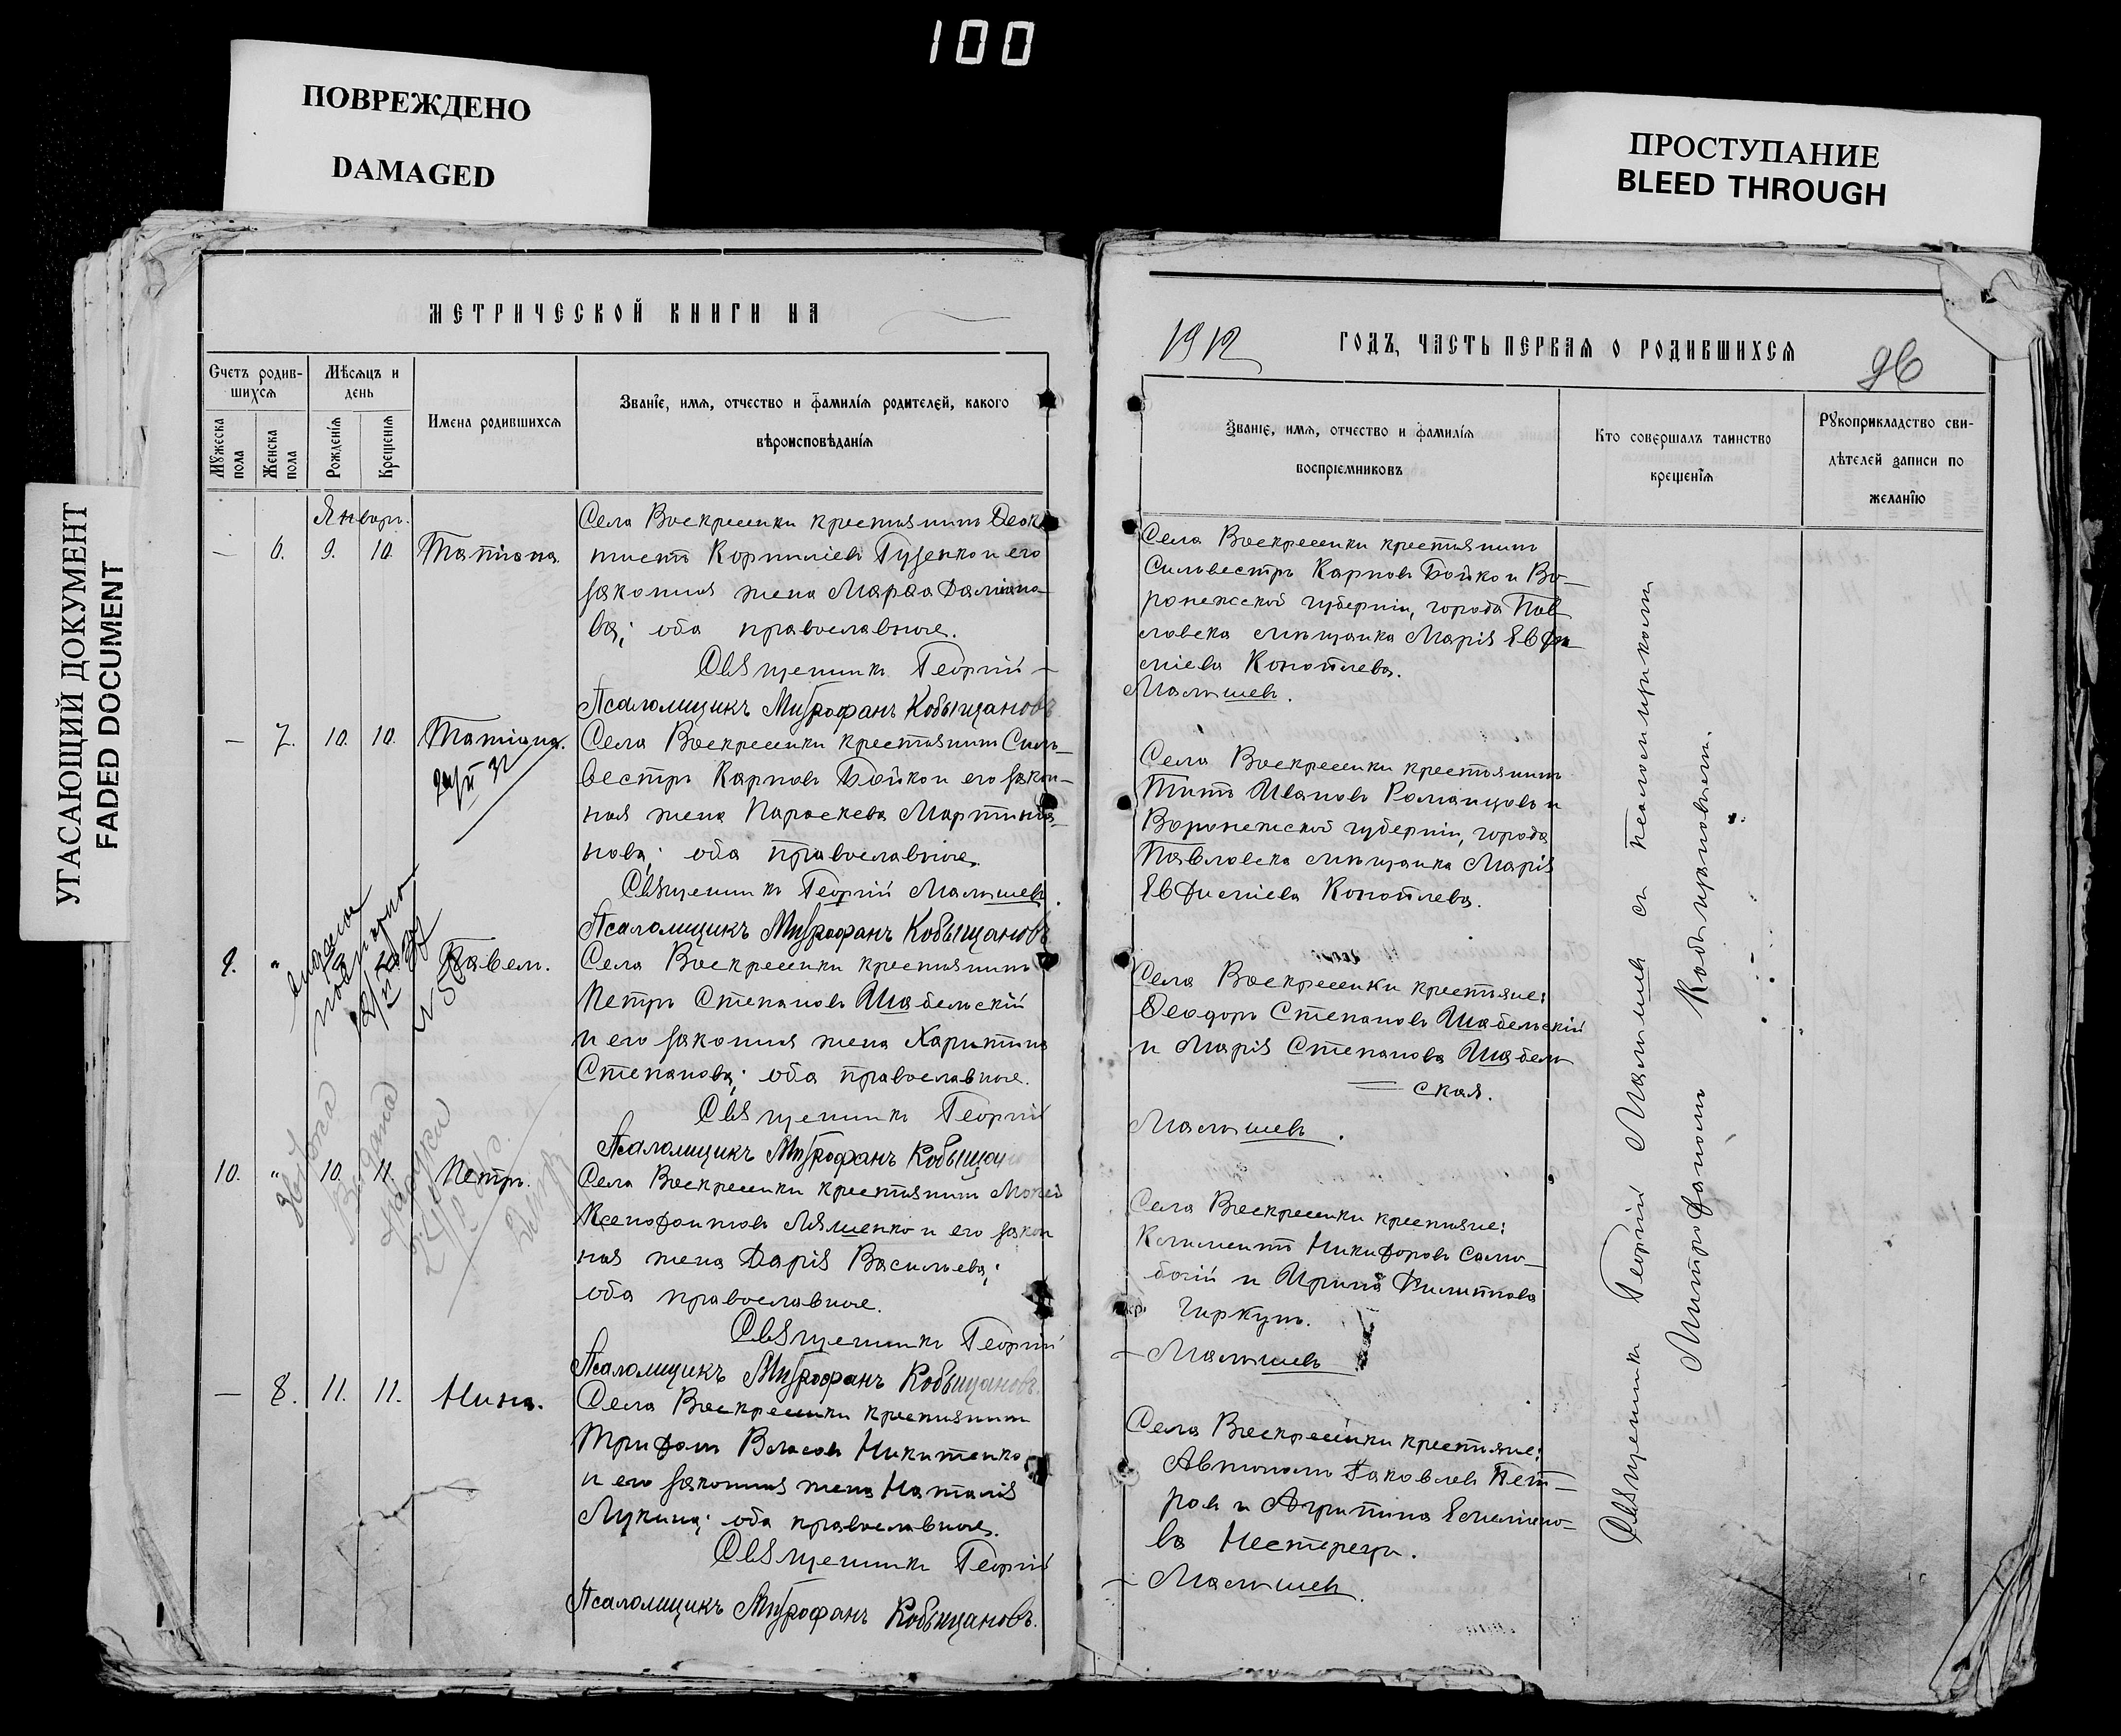 100
ПОВРЕЖДЕНО
DAMAGED
ПРОСТУПАНИЕ
BLEED THROUGH
УГАСАЮЩИЙ ДОКУМЕНТ
FADED DOCUMENT
МЕТРИЧЕСКОЙ КНИГИ НА
Счетъ родив-
шихся
Мѣсяцъ и
день
Имена родившихся
Званіе, имя, отчество и фамилія родителей, какого
вѣроисповѣданія
Мужеска
пола
Женска
пола
Рожденія
Крещенія
Январь.
— 6. 9. 10. Татіана.
Села Воскресенки крестьянинъ Ѳеок-
тистъ Корниліевъ Гузенко и его
законная жена Марѳа Даміано-
ва; оба православные.
Священникъ Георгій —
Псаломщикъ Митрофанъ Кобыщановъ
— 7. 10. 10. Татіана.
Села Воскресенки крестьянинъ Силь-
вестръ Карповъ Бойко и его закон-
ная жена Параскева Мартинія-
нова; оба православные.
Священникъ Георгій Малышевъ.
Псаломщикъ Митрофанъ Кобыщановъ
9. " Павелъ.
Села Воскресенки крестьянинъ
Петръ Степановъ Шабельскій
и его законная жена Харитина
Степанова; оба православные.
Священникъ Георгій
Псаломщикъ Митрофанъ Кобыщан
10. " 10. 11. Петръ.
Села Воскресенки крестьянинъ Мокей
Ксенофонтовъ Ляшенко и его закон
ная жена Дарія Васильева;
оба православные.
Священникъ Георгій
Псаломщикъ Митрофанъ Кобыщановъ.
— 8. 11. 11. Нина.
Села Воскресенки крестьянинъ
Трифонъ Власовъ Никитенко
и его законная жена Наталія
Лукина; оба православные.
Священникъ Георгій
Псаломщикъ Митрофанъ Кобыщановъ.
1912
ГОДЪ, ЧАСТЬ ПЕРВАЯ О РОДИВШИХСЯ
96
Званіе, имя, отчество и фамилія
воспріемниковъ
Кто совершалъ таинство
крещенія
Рукоприкладство сви-
дѣтелей записи по
желанію
Села Воскресенки крестьянинъ
Сильвестръ Карповъ Бойко и Во-
ронежской губерніи, города Пав
ловска мѣщанка Марія Евфи
міева Коноплева.
Малышевъ.
Села Воскресенки крестьянинъ
Титъ Ивановъ Романцовъ и
Воронежской губерніи, города
Павловска мѣщанка Марія
Евфиміева Коноплева.
Села Воскресенки крестьяне:
Ѳеодоръ Степановъ Шабельскій
и Марія Степанова Шабель
= ская.
Малышевъ.
Села Воскресенки крестьяне:
Климентъ Никифоровъ Само-
бочій и Ирина Филиппова
Чиркунъ.
— Малышевъ
Села Воскресенки крестьяне:
Автономъ Іаковлевъ Пет-
ровъ и Агрипина Емеліано-
ва Нестерецъ.
— Малышевъ.
Священникъ Георгій Малышевъ съ псаломщикомъ
Митрофаномъ Кобыщановымъ.